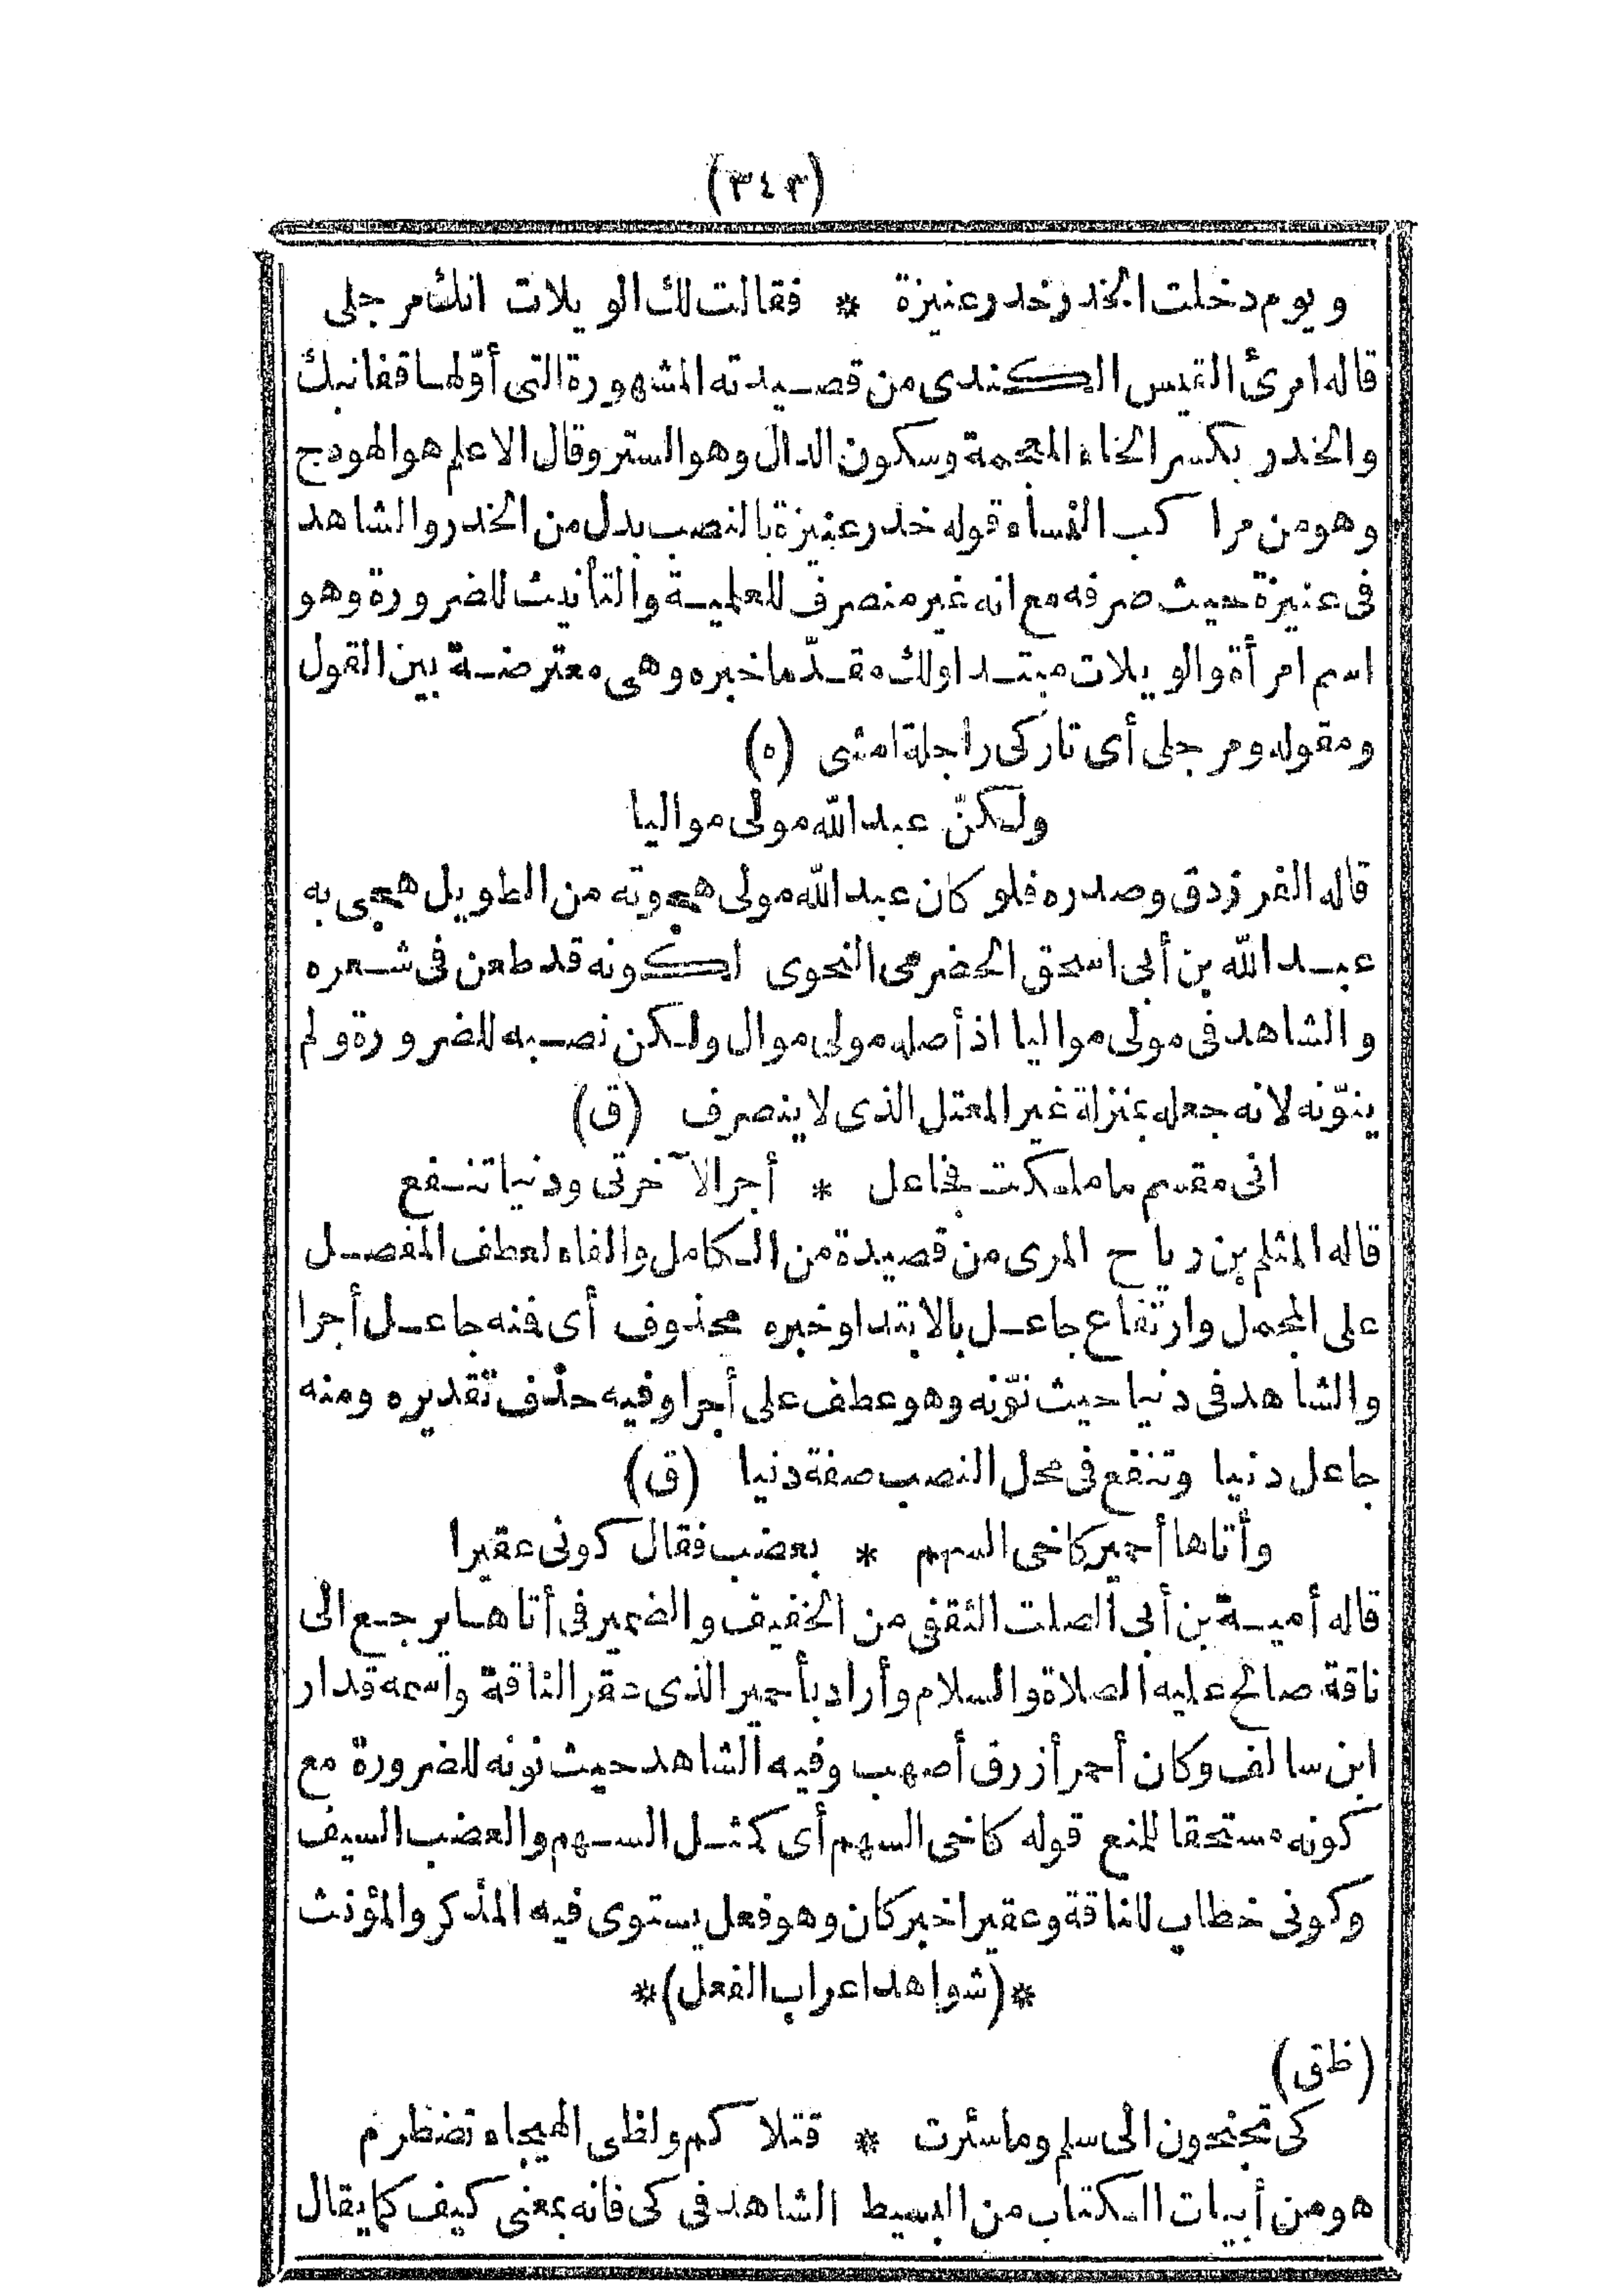 (٣٤٣)
ويوم دخلت الخدر خدر عنيزة * فقالت لك الويلات انك مرجلى
قاله امرئ القيس الكندى من قصيدته المشهورة التى أوّلها قفا نبك
والخدر بكسر الخاء المعجمة وسكون الدال وهو الستر وقال الاعلم هو الهودج
وهو من مراكب النساء قوله خدر عنيزة بالنصب بدل من الخدر والشاهد
فى عنيزة حيث صرفه مع انه غير منصرف للعلمية والتأنيث للضرورة وهو
اسم امرأة والويلات مبتدا ولك مقدّما خبره وهى معترضة بين القول
ومقوله ومرجلى أى تاركى راجلة امشى (ه)
ولكنّ عبد الله مولى مواليا
قاله الفرزدق وصدره فلو كان عبد الله مولى هجوته من الطويل هجى به
عبد الله بن أبى اسحق الحضرمى النحوى لكونه قد طعن فى شعره
والشاهد فى مولى مواليا اذ أصله مولى موال ولكن نصبه للضرورة ولم
ينوّنه لانه جعله بمنزلة غير المعتل الذى لا ينصرف (ق)
انى مقسم ما ملكت فجاعل * أجرا لآخرتى ودنيا تنفع
قاله المثلم بن رياح المرى من قصيدة من الكامل والفاء لعطف المفصل
على المجمل وارتفاع جاعل بالابتدا وخبره محذوف أى فنه جاعل أجرا
والشاهد فى دنيا حيث نوّنه وهو عطف على أجرا وفيه حذف تقديره ومنه
جاعل دنيا وتنفع فى محل النصب صفة دنيا (ق)
وأتاها أحمير كاخى السهم * بعضب فقال كونى عقيرا
قاله أمية بن أبى الصلت الثقفى من الخفيف والضمير فى أتاها يرجع الى
ناقة صالح عليه الصلاة والسلام وأراد بأحمير الذى عقر الناقة واسمه قدار
ابن سالف وكان أحمر أزرق أصهب وفيه الشاهد حيث نونه للضرورة مع
كونه مستحقا للمنع قوله كاخى السهم أى كمثل السهم والعضب السيف
وكونى خطاب للناقة وعقيرا خبر كان وهو فعل يستوى فيه المذكر والمؤنث
*(شواهد اعراب الفعل)*
(ظق)
كى تجنحون الى سلم وما سئرت * قتلاكم ولظى الهيجاء تضطرم
هو من أبيات الكتاب من البسيط الشاهد فى كى فانه بمعنى كيف كما يقال